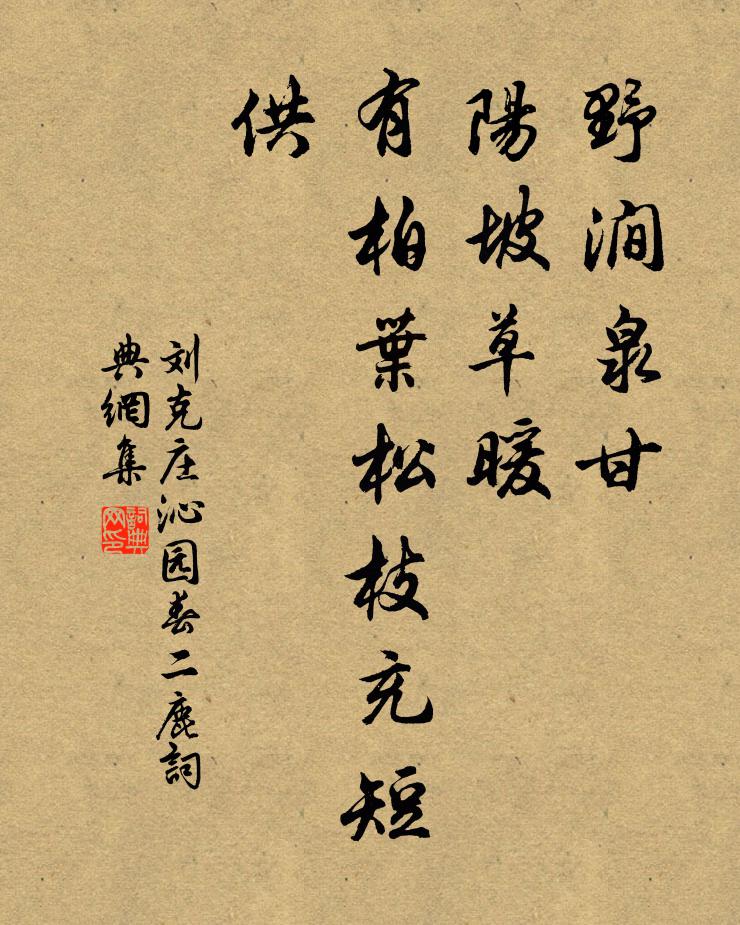 野澗泉甘
陽坡草暖
有柏葉松枝充短
供
刘克庄沁园春二鹿詞
典網集
詞典
网印